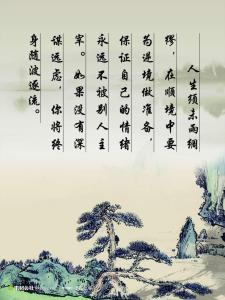 人生须未雨绸
缪，在顺境中要
为逆境做准备，
保证自己的情绪
永远不被别人主
宰。如果没有深
谋远虑，你将终
身随波逐流。